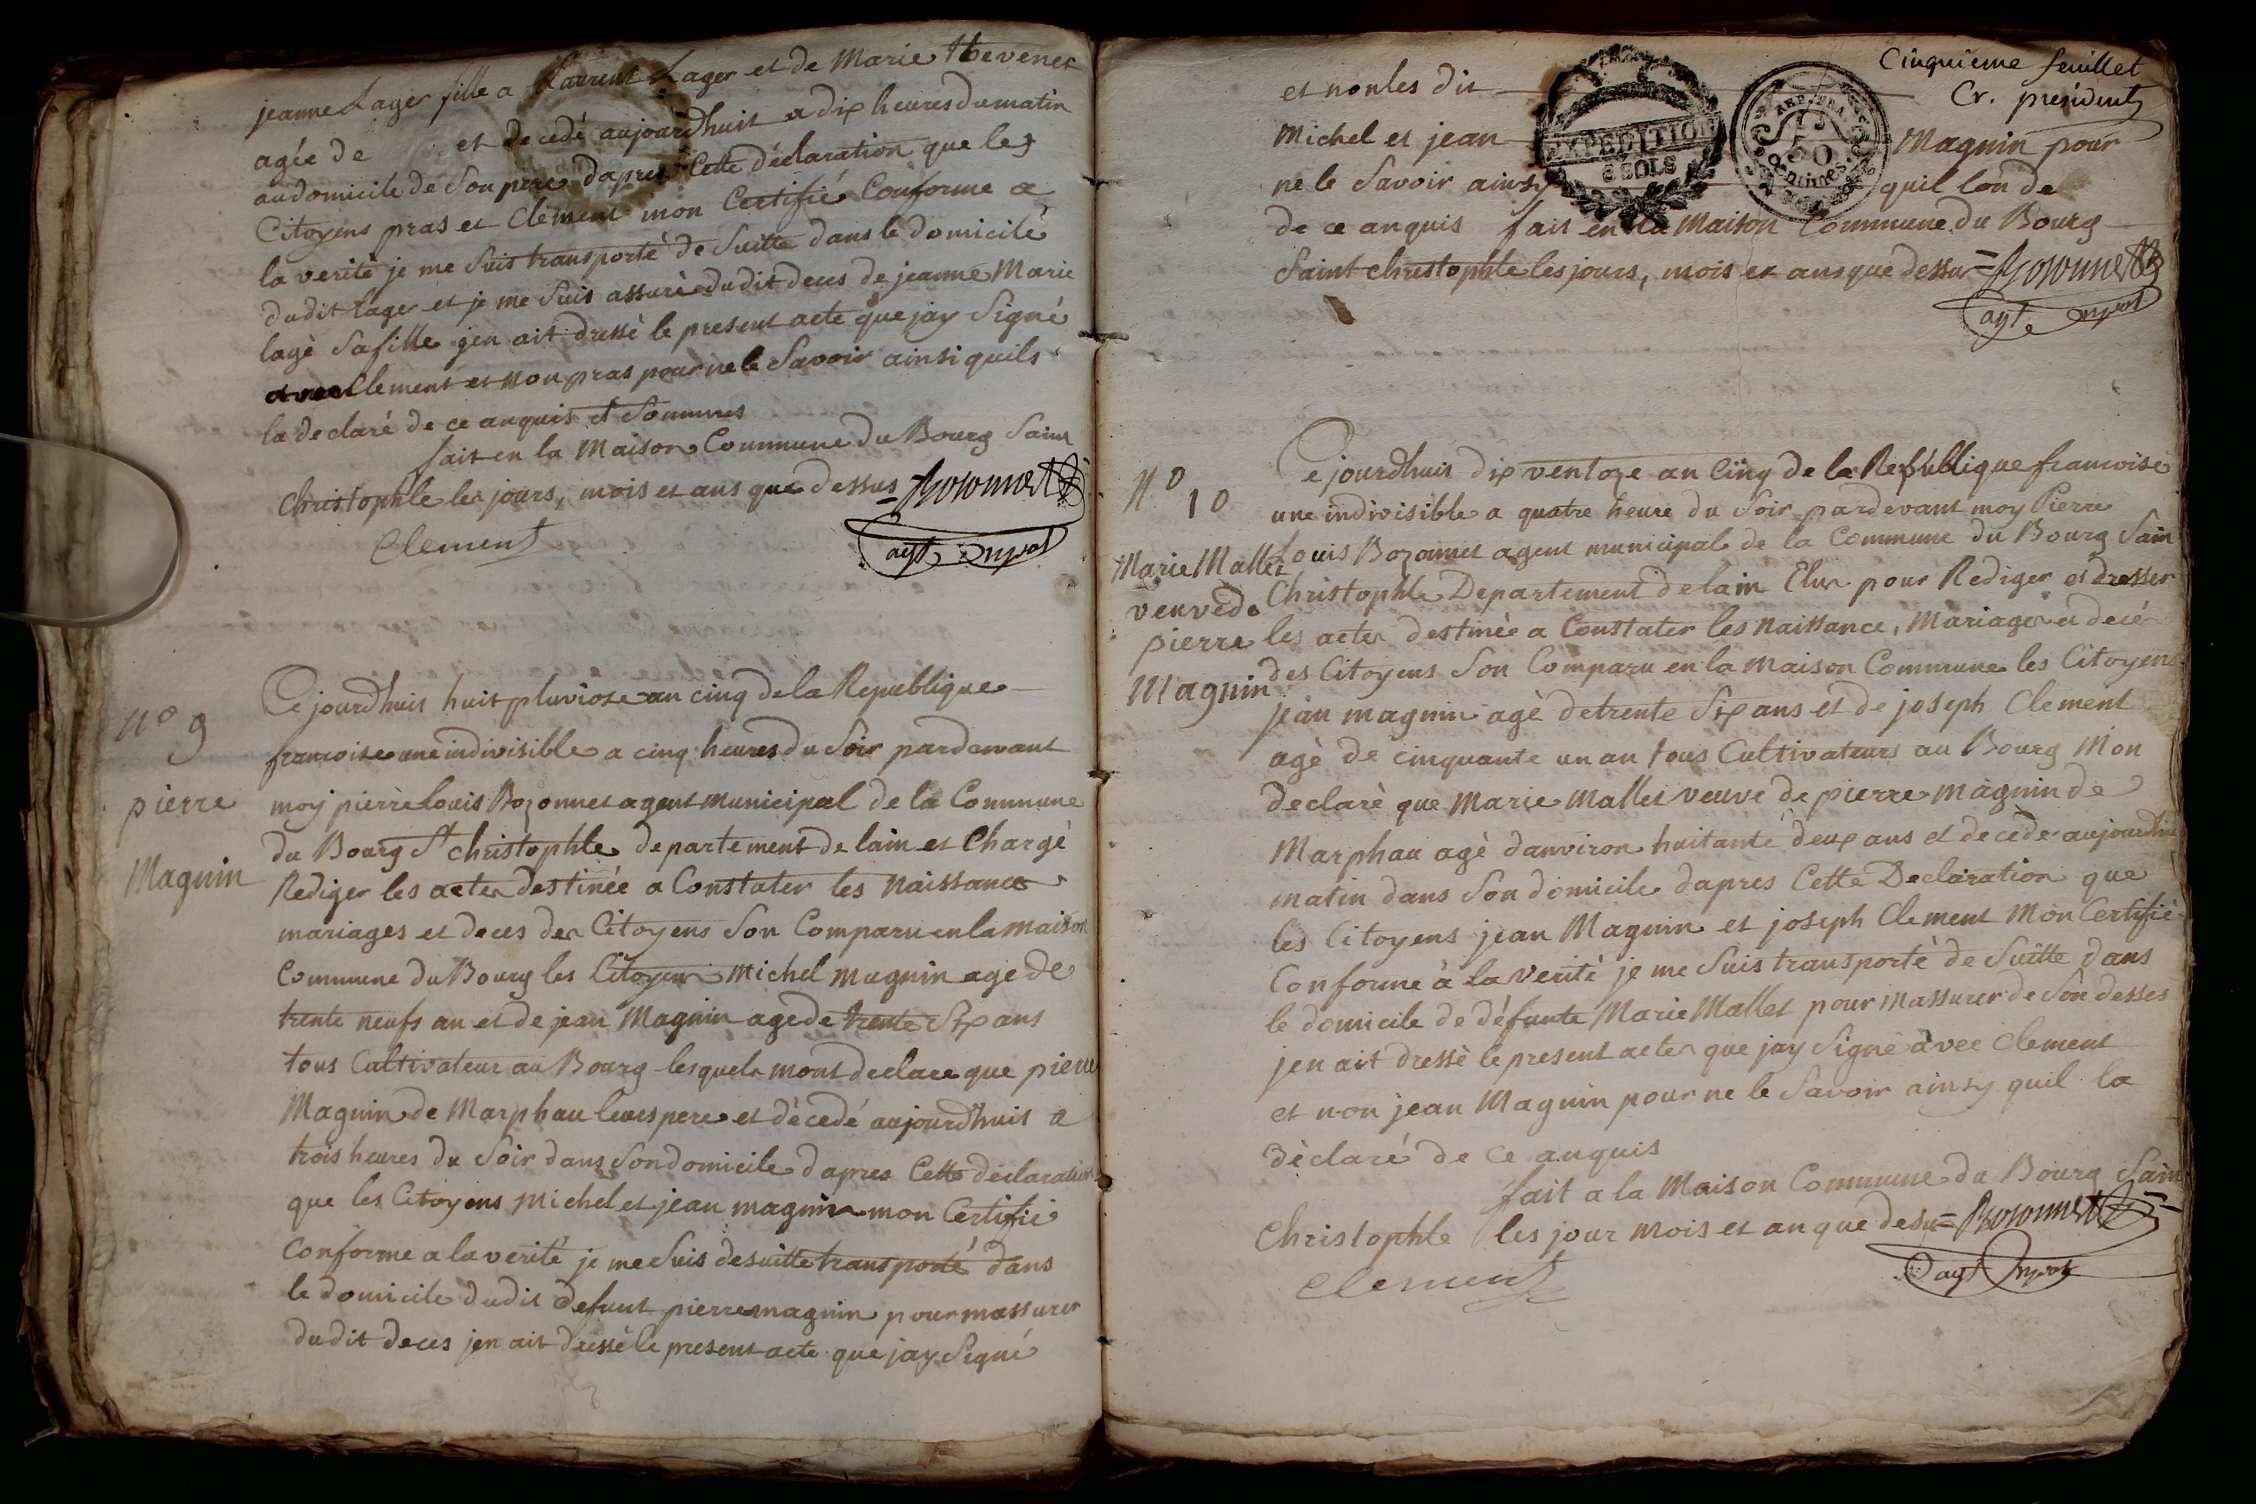 jeanne Lager fille a Laurent Lager et de Marie thevenet
agée de et decedé aujourdhuit a dix heures du matin
audomicile de Son pere dapres Cette déclaration que les
Citoyens pras et Clement mon Certifié Conforme a
la verité je me Suis transporté de Suitte dans le domicile
dudit lager et je me Suis assuré dudit deces de jeanne Marie
lagé Safille jen ait dressé le present acte que jay Signé
avec Clement et non pras pour ne le Savoir ainsi quils
la declaré de ce anquis et Sommes
fait en la Maison Commune du Bourg Saint
Christophle les jours, mois et ans que dessus = Bozonnet
Clement agt
N° 9
pierre
Magnin
Cejourdhuit huit pluviose an cinq de la Republique
francoise une indivisible a cinq heures du Soir pardevant
moy pierre Louis Bozonnet agent municipal de la Commune
du Bourg St christophle departement de lain et Chargé
Rediger les actes destinée a Constater les Naissance
mariages et deces des Citoyens Son Comparu en la maison
Commune du Bourg les Citoyens Michel magnin age de
trente neufs an et de jean Magnin age de trente Six ans
tous Cultivateur au Bourg lesquels mont declare que pierre
Magnin de Marphau leurs pere et décedé aujourdhuit a
trois heures du Soir dans Son domicile dapres Cette déclaration
que les Citoyens Michel et jean magnin mon Certifié
Conforme a la verité je me Suis desuitte transporté dans
le domicile dudit defunt pierre magnin pour massurer
dudit deces jen ait dressé le present acte que jay Signé
Cinquieme feuillet
Cr. president
EXPEDITION
8 SOLS
REP. FRA.
50
centimes
et non les dit
Michel et jean Magnin pour
ne le Savoir ainsy quil lon de
de ce anquis fait en la Maison Commune du Bourg
Saint christophle les jours, mois et ans que dessus = Bozonnet
agt
N° 10
Marie Mallet
veuve de
pierre
Magnin
Cejourdhuit dix ventoze an Cinq de la Republique francoise
une indivisible a quatre heure du Soir pardevant moy Pierre
Louis Bozonnet agent municipal de la Commune du Bourg Sain
Christophle Departement de lain Elu pour Rediger et dresser
les actes destinée a Constater les Naissance, Mariages et decé
des Citoyens Son Comparu en la Maison Commune les Citoyens
jean magnin agé de trente Six ans et de joseph Clement
agé de cinquante un an tous Cultivateurs au Bourg Mon
declaré que Marie Mallet veuve de pierre magnin de
Marphau agé danviron huitante deux ans et decedé aujourdhuit
matin dans Son domicile dapres Cette Declaration que
les Citoyens jean Magnin et joseph Clement Mon Certifié
Conforme à la verité je me Suis transporté de Suitte dans
le domicile de défunte Marie Mallet pour massurer de Son desses
jen ait dressé le present actes que jay Signé avec Clement
et non jean Magnin pour ne le Savoir ainsy quil la
déclaré de ce anquis
fait a la Maison Commune du Bourg Sain
Christophle les jour Mois et an que desu = Bozonnet
Clement agt